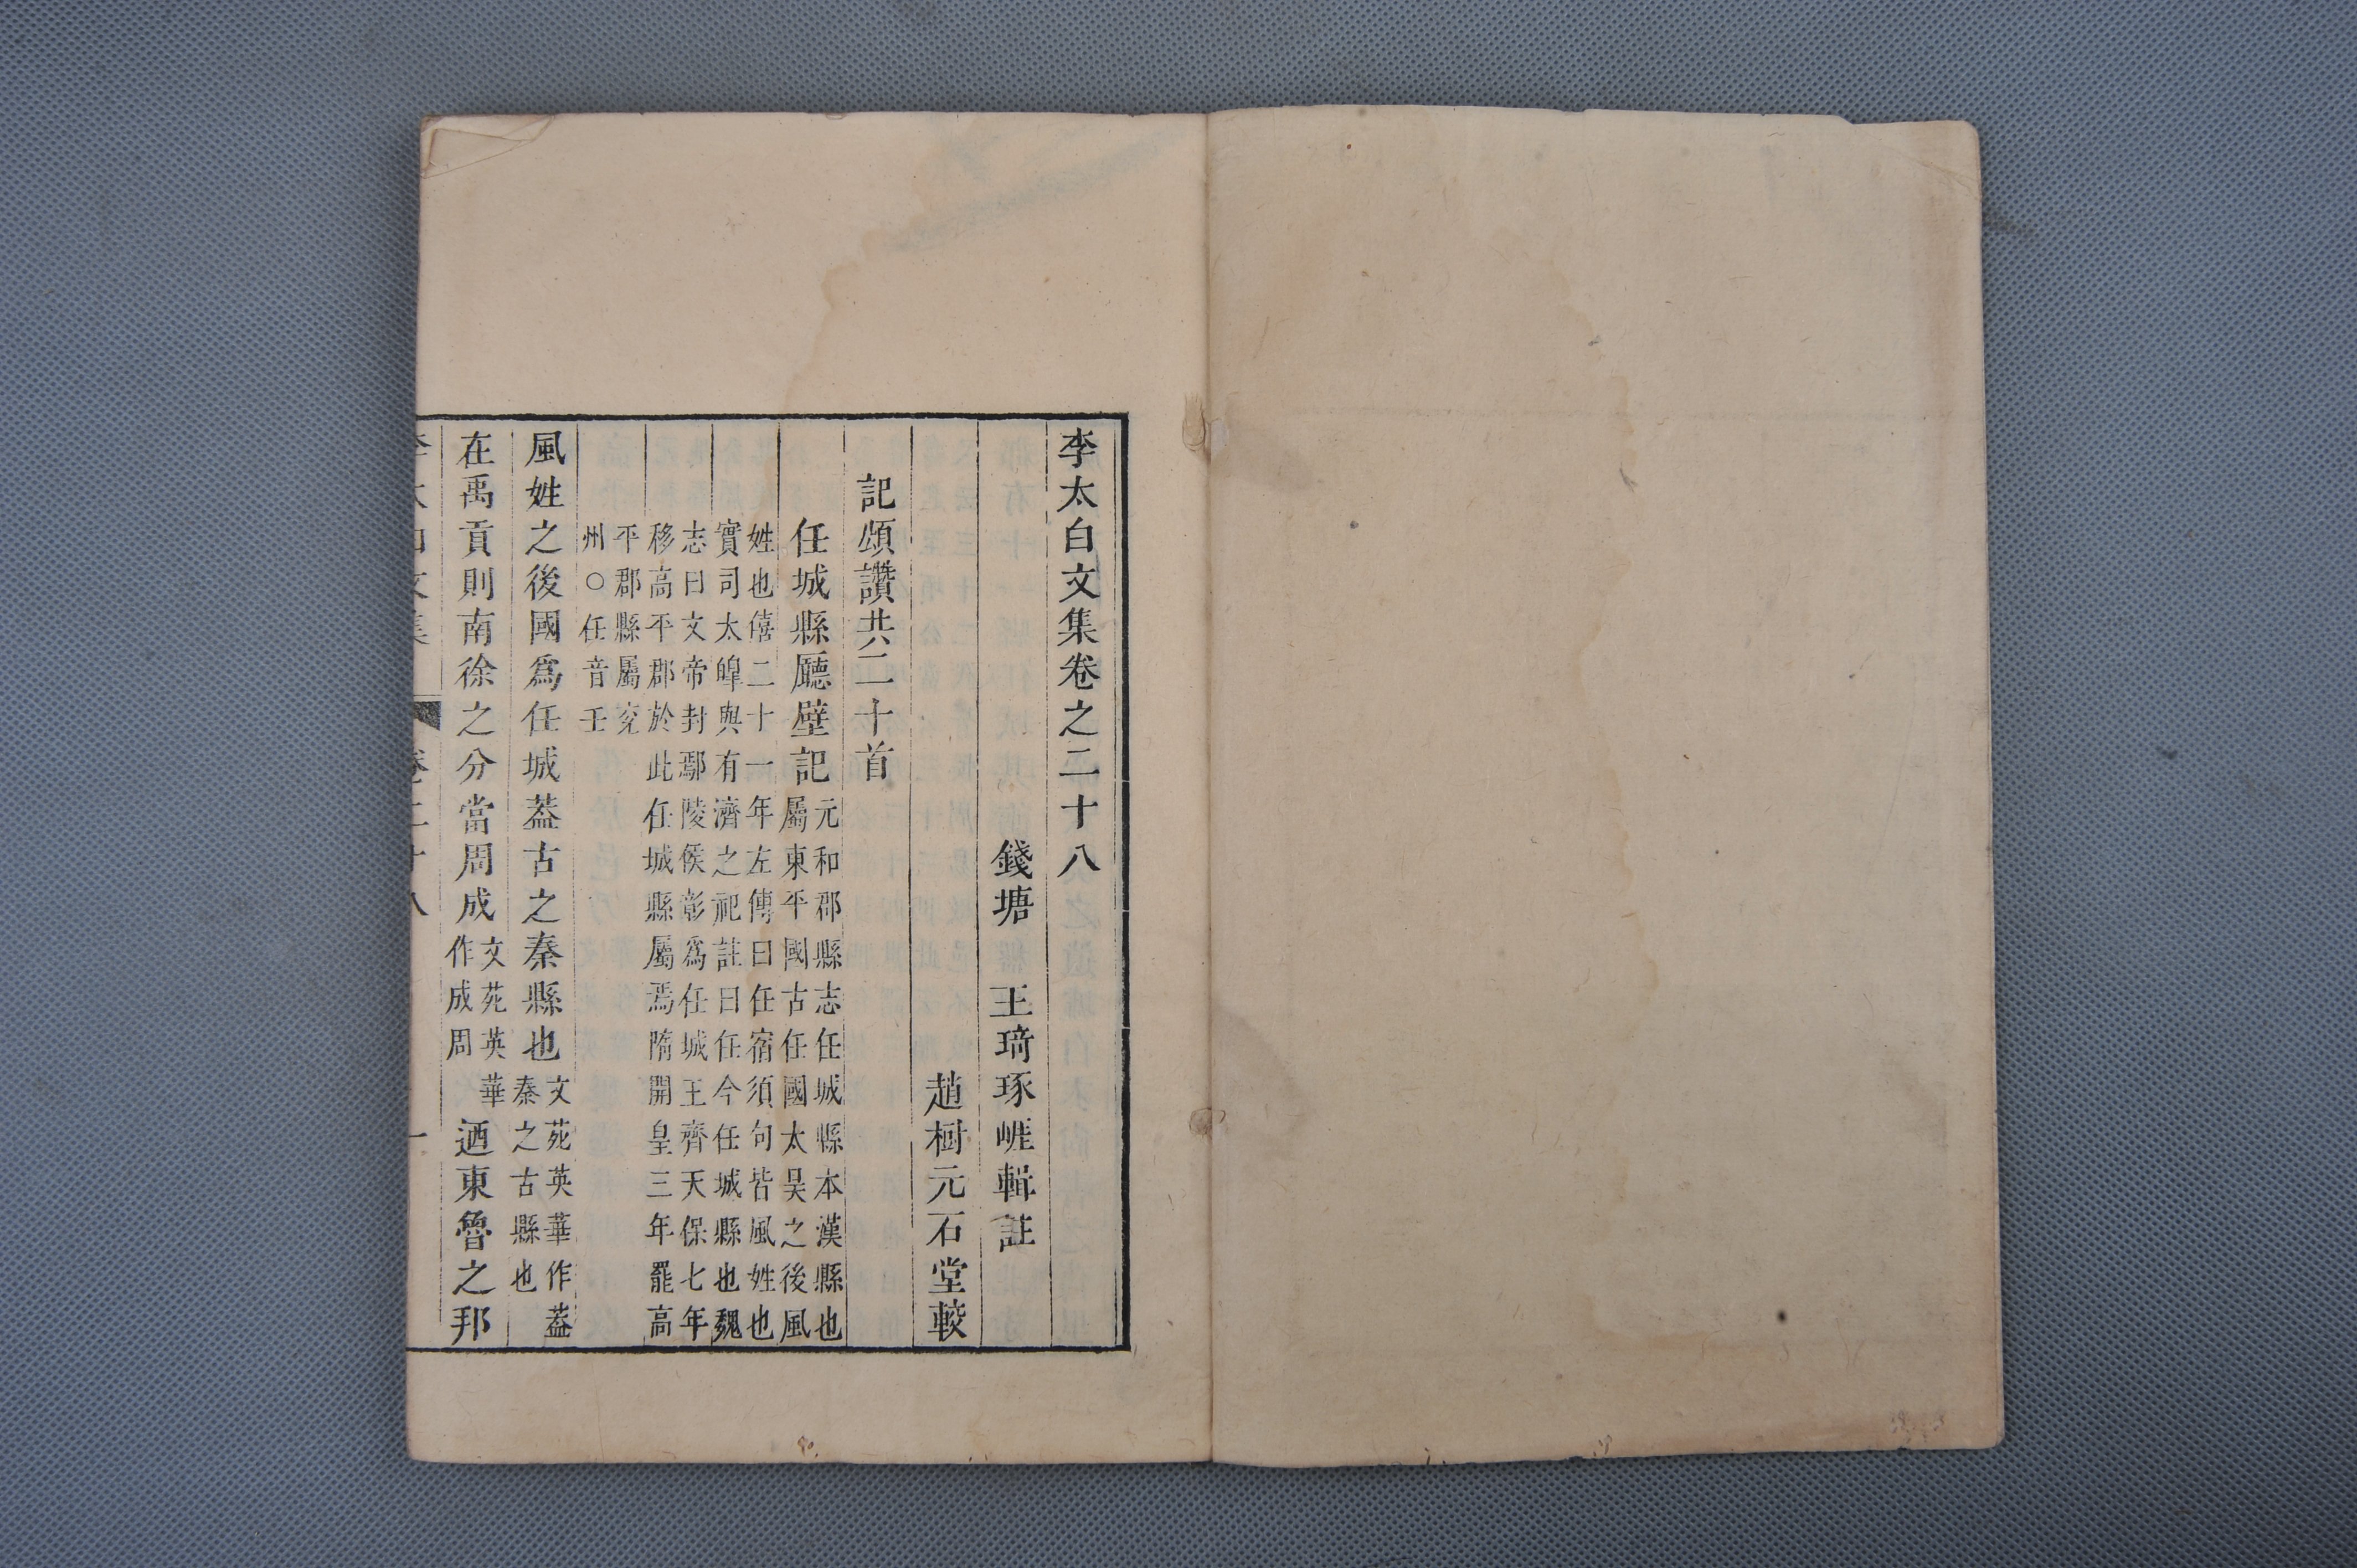 李太白文集卷之二十八
錢塘 王琦琢崖輯註
趙樹元石堂較
記頌讚共二十首
任城縣廳壁記
元和郡縣志任城縣本漢縣也
屬東平國古任國太昊之後風
姓也僖二十一年左傳曰任宿須句皆風姓也
實司太皞與有濟之祀註曰任今任城縣也魏
志曰文帝封鄢陵侯彰爲任城王齊天保七年
移高平郡於此任城縣屬焉隋開皇三年罷高
平郡縣屬兖
州○任音壬
風姓之後國爲任城葢古之秦縣也
文苑英華作葢
秦之古縣也
在禹貢則南徐之分當周成
文苑英華
作成周
迺東魯之邦
卷二十八
一